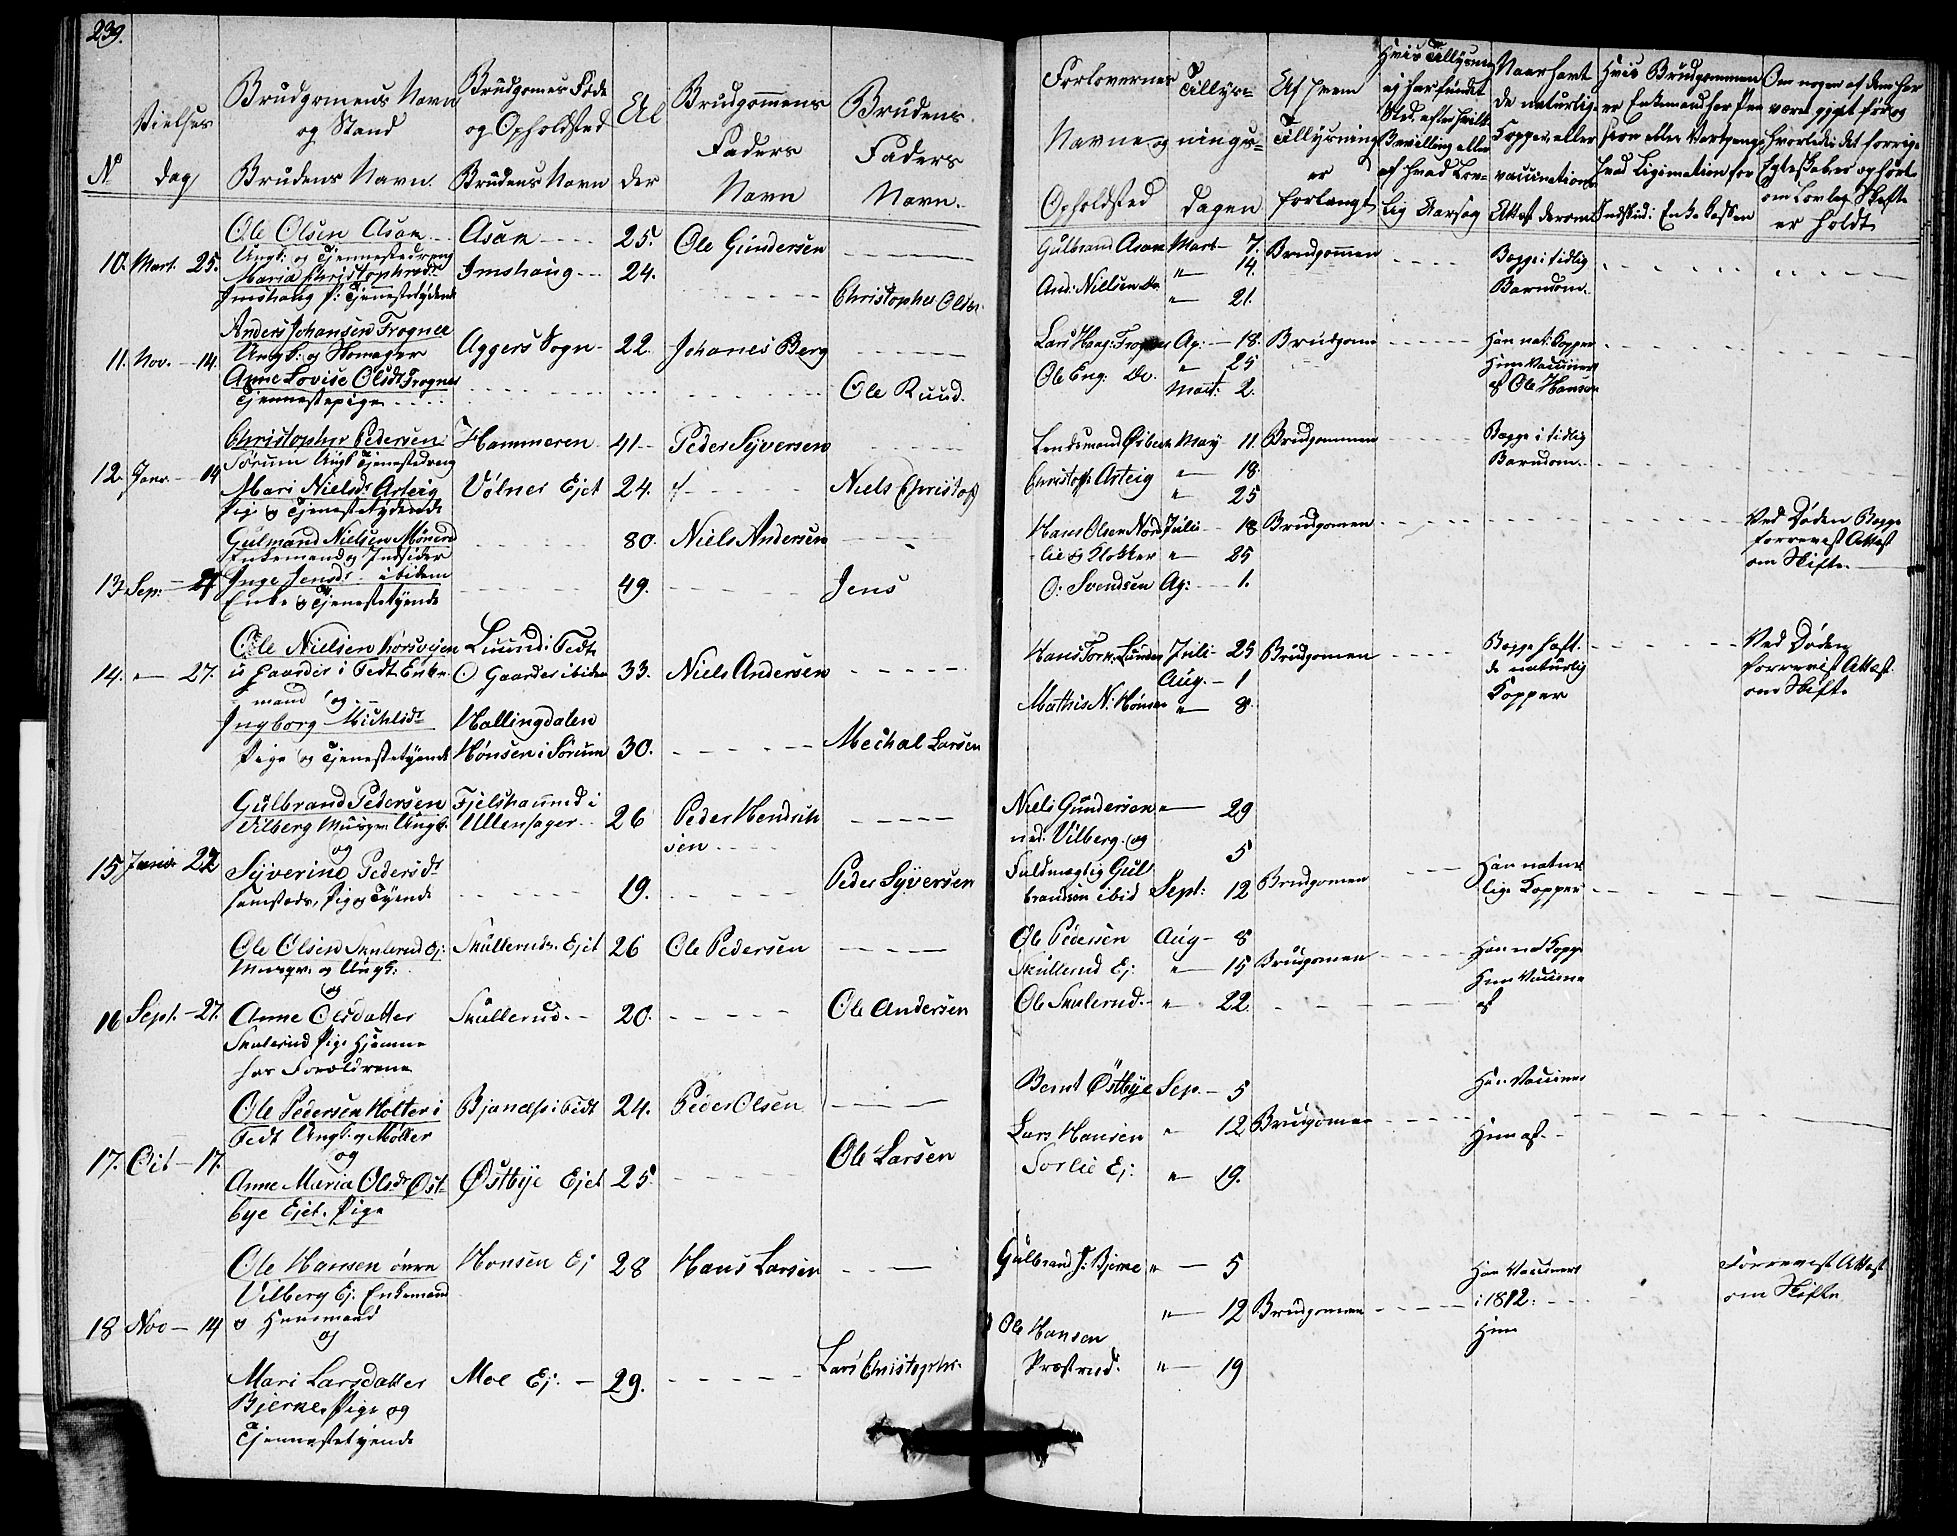 239.
N
Vielses
dag
Brudgomens Navn
og Stand
Brudens Navn.
Brudgomes Føde
og Opholdsted
Brudens Navn
Al
der
Brudgommens
Faders
Navn
Brudens
Faders
Navn.
Forlovernes
Navne og
Opholdsted
Tillys-
nings-
dagen
Af hvem
Tillysning
er
forlangt
Hvis Tillysning
ej har fundet
Sted, efter hvilk
Bevilling eller
af hvad Lov-
lig Aarsag
Naar havt
de naturlige
Kopper eller
vaccinations
Attest derom
Hvis Brudgommen
er Enkemand
hvad Ligimation for
Indskud i Enke Cassen
Om nogen af dem har
været gift før og
hvorledes det forrige
Egteskab er ophørt
om Lovlig Skifte
er holdt
10. Mart. 25.
Ole Olsen Asan
Ungk: og Tjennestedreng
Maria Christophersd.
Imshaug P: Tjennestetydende
Asan
Imshaug
25.
24.
Ole Gundersen
Christopher Olsen
Gulbrand Asan
And: Nielsen do.
Mart- 7.
" 14.
" 21.
Brudgommen
Begge i tidlig
Barndom.
11. Nov. 14.
Anders Johansen Frogner
Ungk: og Skomager
Anne Lovise Olsdt. Frogner
Tjennestepige
Aggers Sogn
22.
Johanes Berg
Ole Ruud.
Lars Haug: Frogner
Ole Eng: do.
Ap: 18.
" 25
Mart: 2.
Brudgomn
Han nat: Kopper
Hun Vaccineret
af Ole Hansen
12. Janr. 14
Christopher Pedersen
Sørum Ungk Tjenestedreng
Mari Nielsdt. Arteig
Pige og Tjenestetydende
Hammeren
Vølner Ejet
41
24.
Peder Syversen
Niels Christof
Lendsmand Østbech
Christoph: Arteig
May 11.
" 18.
" 25
Brudgommen
Begge i tidlig
Barndom.
13. Sep: 27
Gulmand Nielsen
Enkemand og Indsider
Inge Jensdr. ibidem
Enke og Tjenestetyende
80.
49.
Niels Andersen
Jens
Hans Olsen Nord
lie og Klokker
O: Svendsen
Juli 18
" 25
Ag: 1.
Brudgomen
Ved Døden Begge
forrevist Attest
om Skifte.
14. " 27.
Ole Nielsen Korsvejen
u Gaarder i Fedt Enke
mand og
Ingborg Michlsdt.
Pige og Tjenestetyende
Luund i Fedt
O Gaarder ibidem
Hallingdalen
Hønsen i Sørum
33.
30.
Niels Andersen
Mechal Larsen
Hans Tork. Lunder
Mathis N: Hønsen
Juli 25
Aug. 1
" 8.
Brudgomen
Begge haft
de naturlig
Kopper
Ved Døden
forrevist Attest
om Skifte
15. Janr. 27
Gulbrand Pedersen
Vilberg Ungk.
og
Syverine Pedersdt.
samsteds, Pige og Tyende
Fjelshaured i
Ullensager
26
19.
Peder Hendrik
sen
Peder Syversen
Niels Gundersen
ned: Vilberg og
Fuldmægtig Gul
brandsen ibid
" 29
5
Sept: 12
Brudgomen
Han natur
lige Kopper
16 Sept. 27.
Ole Olsen Skulerud Ej:
og Ungk:
og
Anne Olsdatter
Skulerud Pige Hjemme
hos Forældrene
Skullerud. Ejet
Skullerud.
26
20.
Ole Pedersen
Ole Andersen
Ole Pedersen
Skullerud Ej:
Ole Skulerud.
Aug 8
" 15
" 22.
Brudgomen
Han nat Kopp
Hun Vaccine
af
17. Oct 17.
Ole Pedersen Holter i
Fedt Ungk: og Møller
og
Anne Maria Olsdt Øst-
bye Ejet. Pige
i Fedt
Østbye Ejet
24.
25.
Peder Olsen
Ole Larsen
Bernt Østbye
Lars Hansen
Sorlie Ej:
Sep. 5
" 12
" 19.
Brudgomen
Han Vaccines
Hun af
18 Nov 14
Ole Hansen øvre
Vilberg Ej: Enkemand
og Huusmand
og
Mari Larsdatter
Bjerke, Pige og
Tjennestetyende
Honsen Ej
Moe Ej:
28
29.
Hans Larsen
Lars Christophr.
Gulbrand J: Bjerne
Ole Hansen
Præstrud.
" 5
" 12
" 19
Brudgomen
Han Vaccineret
i 1812.
Hun
Forrevist Attest
om Skifte